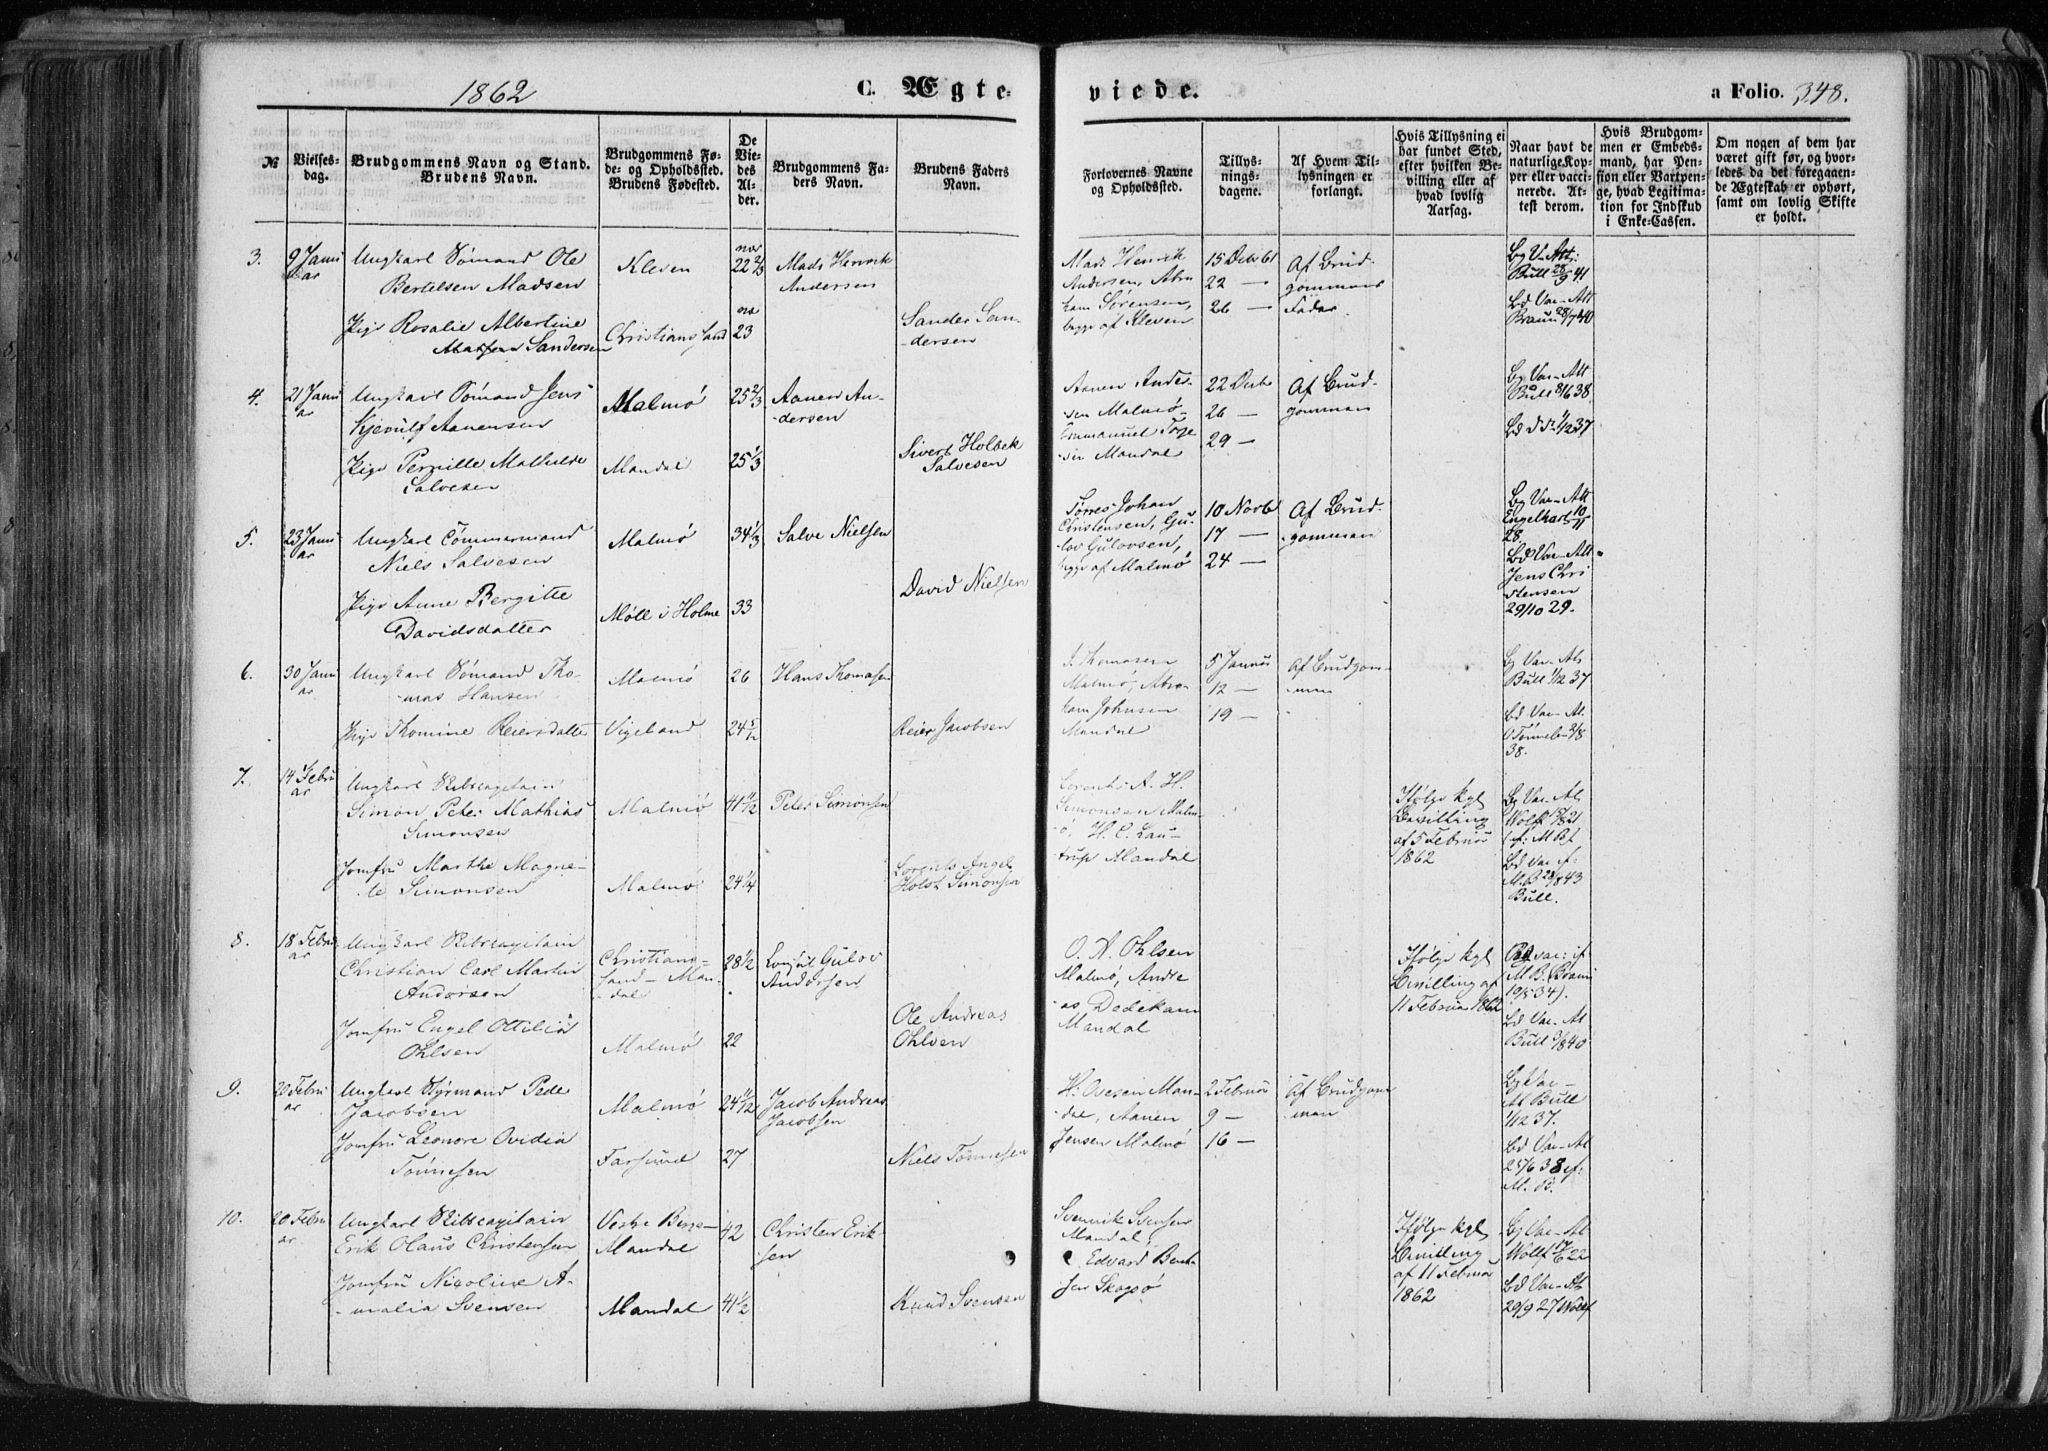 1862 C. Ægteviede. a Folio. 348.
№
Vielsesdag.
Brudgommens Navn og Stand.
Brudens Navn.
Brudgommens Føde- og Opholdssted.
Brudens Fødested.
De Viedes Alder.
Brudgommens Faders Navn.
Brudens Faders Navn.
Forlovernes Navne og Opholdssted.
Tillysningsdagene.
Af Hvem Tillysningen er forlangt.
Hvis Tillysning ei har fundet Sted, efter hvilken Bevilling eller af hvad lovlig Aarsag.
Naar havt de naturlige Kopper eller vaccinerede. Attest derom.
Hvis Brudgommen er Embedsmand, har Pension eller Vartpenge, hvad Legitimation for Indskud i Enke-Cassen.
Om nogen af dem har været gift før, og hvorledes da det foregaaende Ægteskab er ophørt, samt om lovlig Skifte er holdt.
3. 9 Januar
Ungkarl Sømand Ole
Bertelsen Madsen
Kleven
22 2/3
Mads Henrik
Andersen
Pige Rosalie Albertine
Sandersen
Christianssand
23
Sander Sandersen
Mads Henrik
Andersen, Abraham Sørensen,
begge af Kleven
15 Decb 61
22 —
26 —
Af Brudgommens
Fader
Bg V. Att:
Bull 28/9 41
Bd Vac. Att
Braun 28/7 40
4. 21 Januar
Ungkarl Sømand Jens
Kjerulf Aanensen
Malmø
25 2/3
Aanen Andersen
Pige Pernille Mathilde
Salvesen
Mandal
25 1/3
Sivert Holbek
Salvesen
Aanen Andersen Malmø
Emmanuel
Mandal
22 Decbr
26 —
29 —
Af Brudgommen
Bg Vac. Att
Bull 8/6 38
5. 23 Januar
Ungkarl Tømmermand
Niels Salvesen
Malmø
34 1/3
Salve Nielsen
Pige Anne Bergitte
Davidsdatter
Møll i Holme
33
David Nielsen
Tørres Johan
Christensen, Gulov Gulovsen,
begge af Malmø
10 Novb
17 —
24 —
Af Brudgommen
Bg Vac. Att
Engelhart 10/11
28.
Bd Vac. Att
Jens Christensen
29/10 29.
6. 30 Januar
Ungkarl Sømand Thomas Hansen
Malmø
26
Hans Thomasen
Pige Thomine Reiersdatter
Vigeland
24 5/12
Reier Jacobsen
Thomasen
Malmø, Abraham Johnsen
Mandal
5 Januar
12 —
19 —
Af Brudgommen
Bg Vac. At.
Bull 1/12 37
Bd Vac. At.
38.
7. 14 Februar
Ungkarl Skibscapitain
Simon Peter Mathias
Simonsen
Malmø
41 11/12
Peter Simonsen
Jomfru Marthe Magnete Simonsen
Malmø
24 1/4
Lorents Angel
Holst Simonsen
Lorents A. H.
Simonsen Malmø, H. C. Lautrup Mandal
Ifølge kgl
Bevilling
af 5 Februar
1862
Bg Vac. At.
Wolff
Bull.
8. 18 Februar
Ungkarl Skibscapitain
Christian Carl Martin
Andersen
Christianssand — Mandal
28 1/2
Gulov
Andersen
Jomfru Engel Ottilia
Ohlsen
Malmø
22
Ole Andreas
Ohlsen
O. A. Ohlsen
Malmø, Andreas Dedekam
Mandal
Ifølge kgl
Bevilling af
11 Februar 1862
Bd Vac. At
Bull 3/8 40
9. 20 Februar
Ungkarl Styrmand Peder
Jacobsen
Malmø
24 11/12
Jacob Andreas
Jacobsen
Jomfru Leonore Ovidia
Tønnesen
Farsund
27
Niels Tønnesen
H. Ovesen Mandal, Aanen
Jensen Malmø
2 Februar
9 —
16 —
Af Brudgommen
Bg Vac.
At Bull
1/12 37.
Bd Vac. At
10. 20 Februar
Ungkarl Skibscapitain
Erik Olaus Christensen
Mandal
42
Christen Eriksen
Jomfru Nicoline Amalia Svensen
Mandal
41 1/2
Knud Svensen
Svennik Svensen
Mandal,
Edvard Bentsen Skogsø
Ifølge kgl
Bevilling
af 11 Februar
1862
Bg Vac. At
Wolff
Bd Vac. At.
29/9 27 Wolff